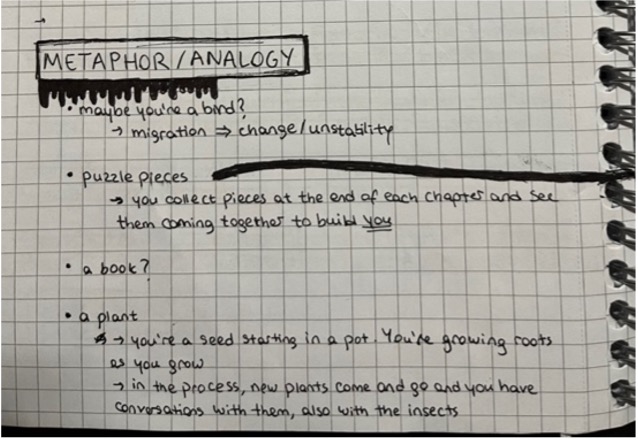 →
METAPHOR/ANALOGY
• maybe you're a bird?
→ migration ⇒ change/unstability
• puzzle pieces
→ you collect pieces at the end of each chapter and see
them coming together to build you
• a book?
• a plant
→ you're a seed starting in a pot. You're growing roots
as you grow
→ in the process, new plants come and go and you have
conversations with them, also with the insects